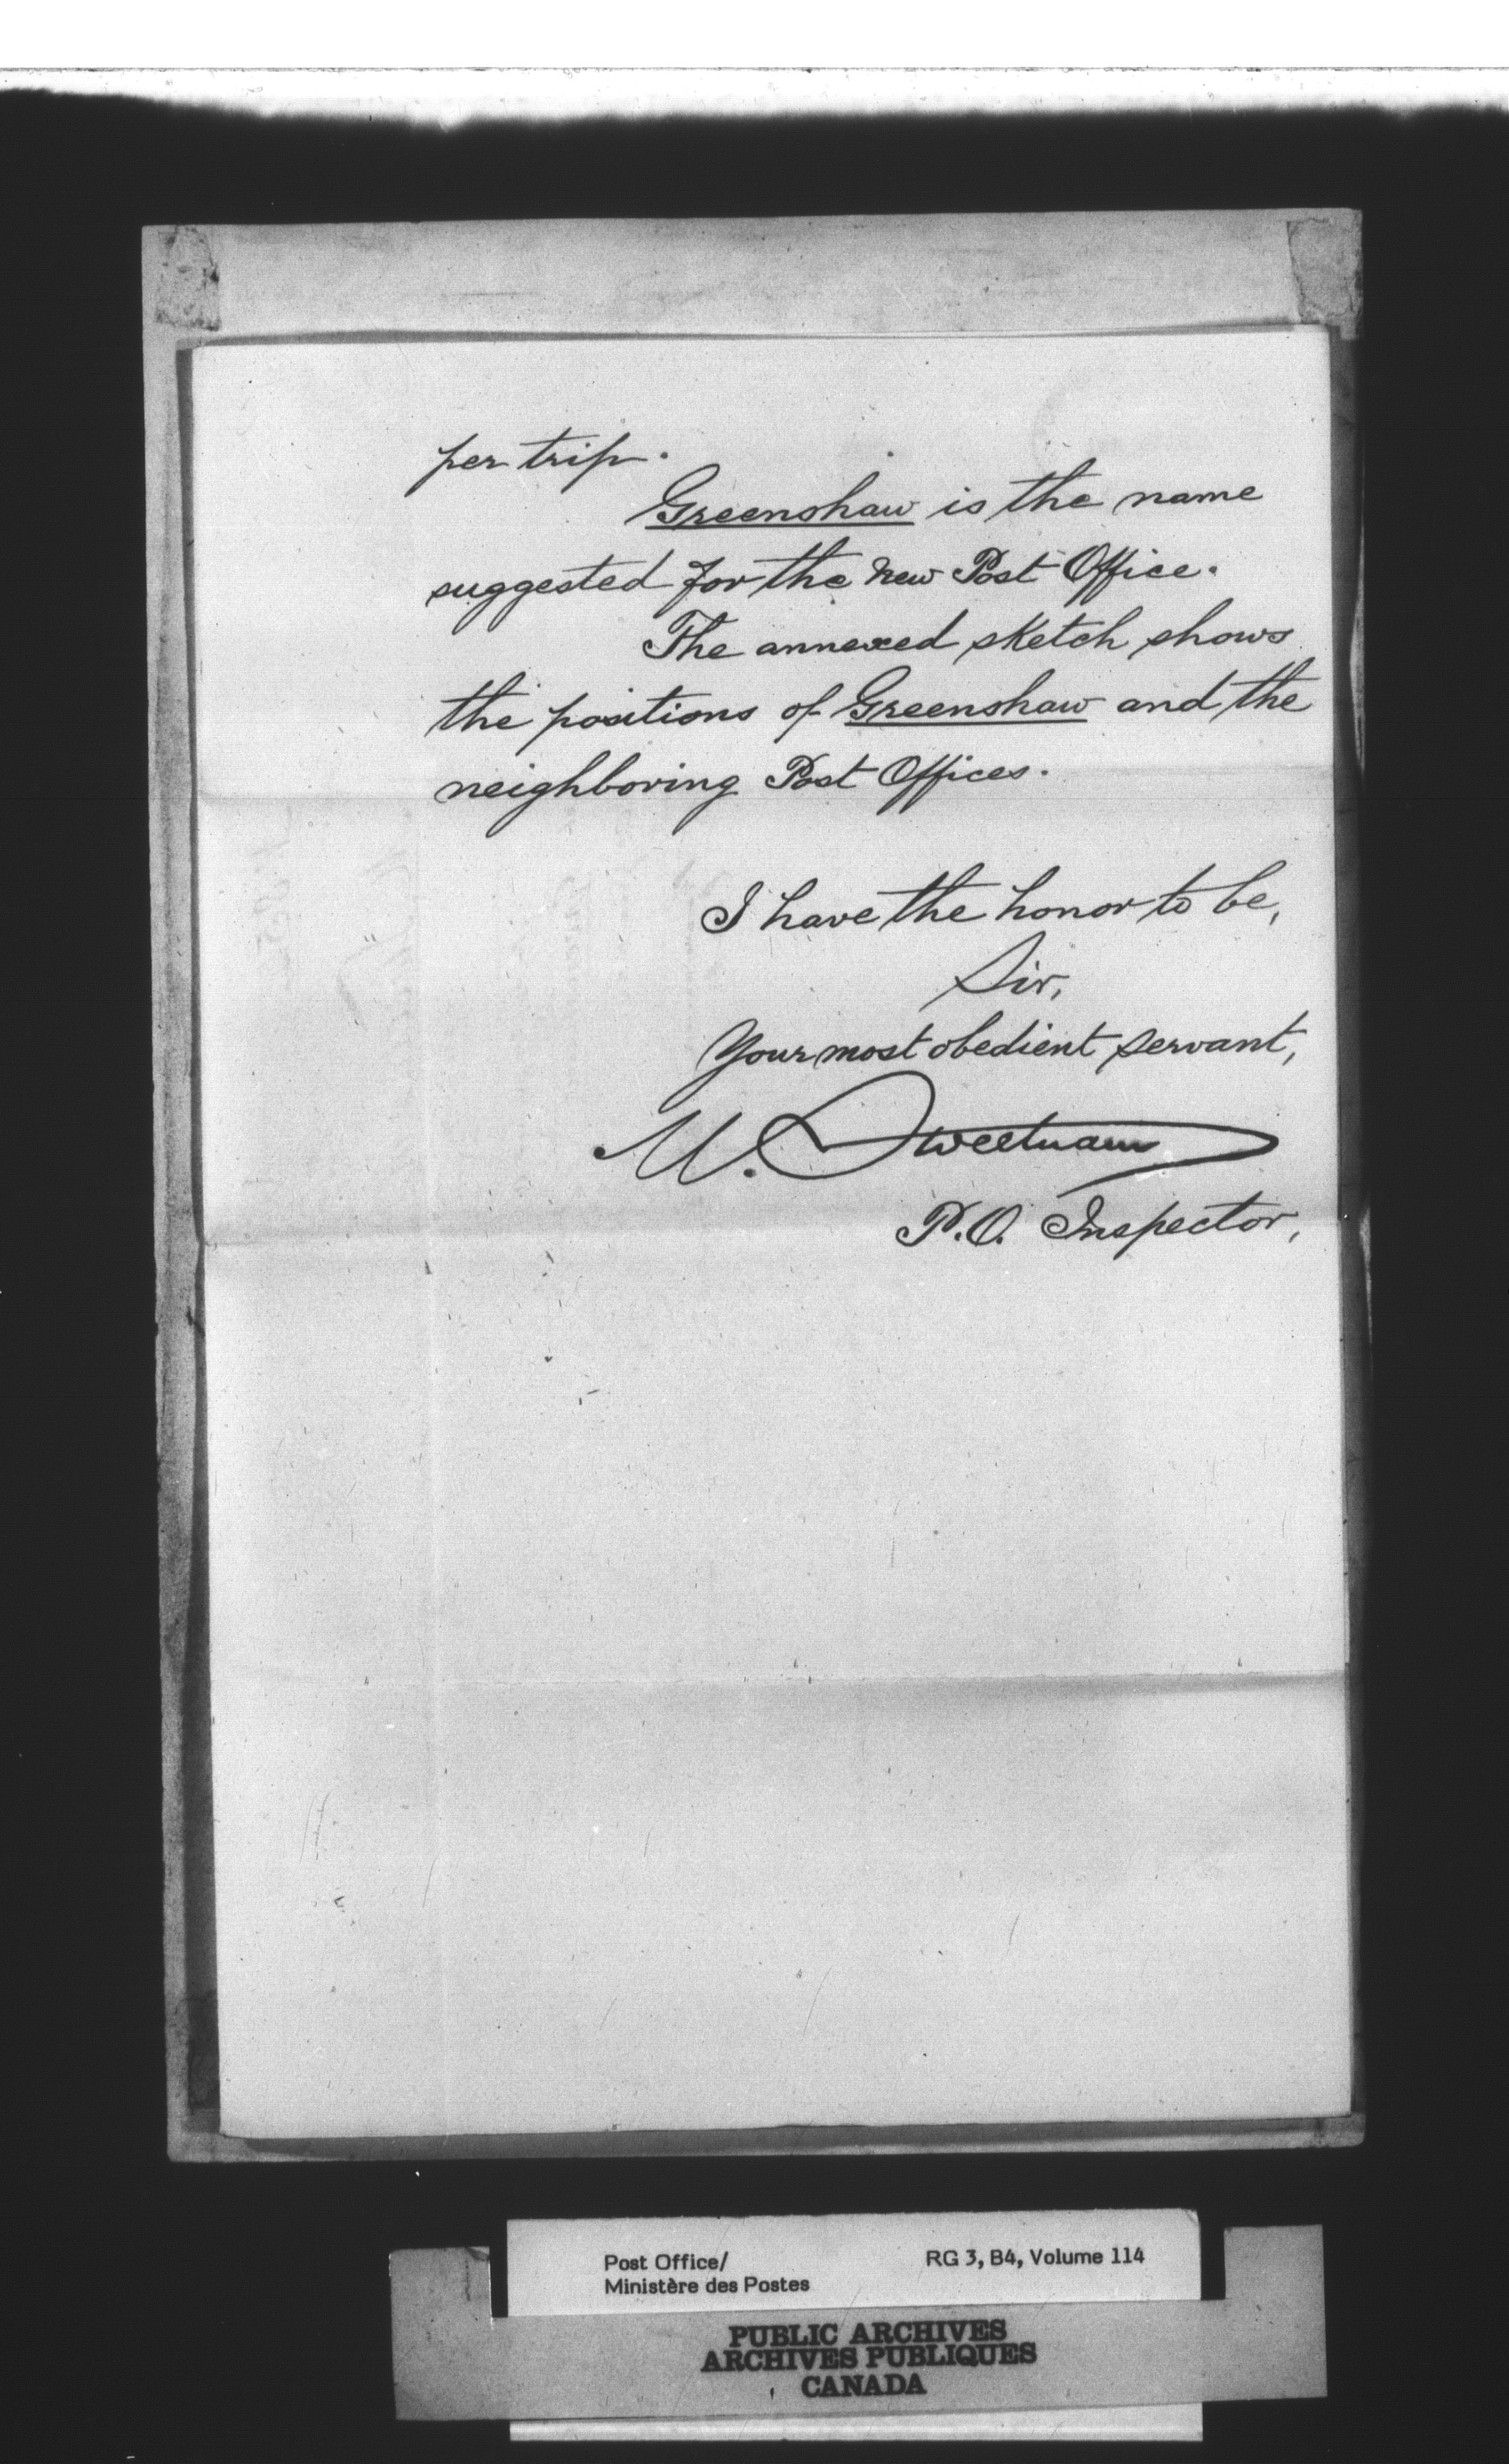 per trip.
Greenshaw is the name
suggested for the new Post Office.
The annexed sketch shows
the positions of Greenshaw and the
neighboring Post Offices.
I have the honor to be,
Sir,
Your most obedient servant,
M. Sweetnam
P.O. Inspector,
Post Office/ RG 3, B4, Volume 114
Ministère des Postes
PUBLIC ARCHIVES
ARCHIVES PUBLIQUES
CANADA